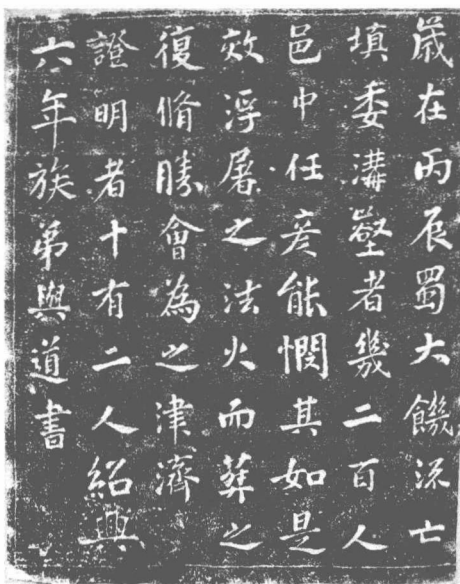 歲在丙辰蜀大饑流亡
填委溝壑者幾二百人
邑中任彥能憫其如是
效浮屠之法火而葬之
復脩勝會為之津濟
證明者十有二人紹興
六年族弟與道書